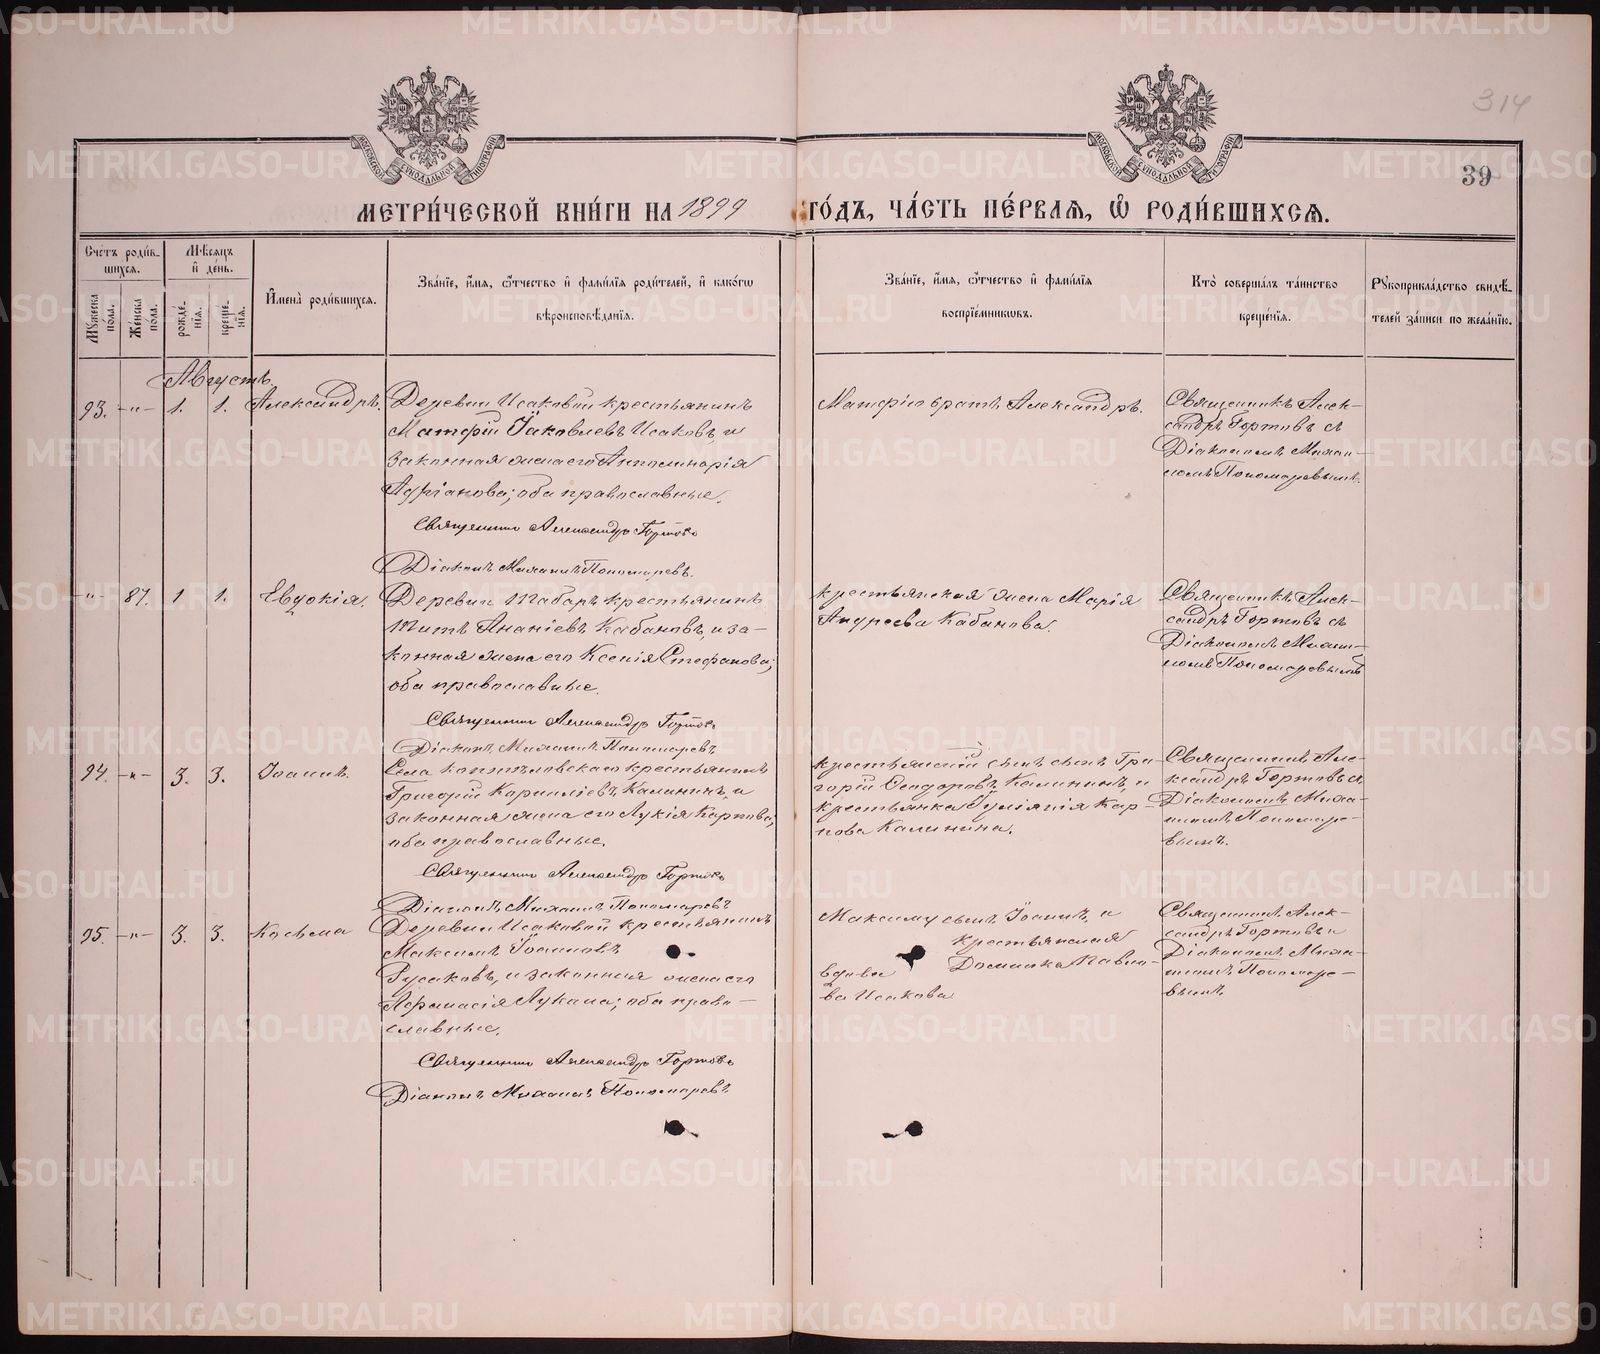 314
39
МЕТРИ́ЧЕСКОЙ КНИ́ГИ НА 1899 ГО́ДЪ, ЧА́СТЬ ПЕ́РВАЯ, Ѡ РОДИ́ВШИХСЯ.
Сче́тъ роди́в-
шихся.
Му́жеска пола.
Же́нска пола.
Мѣ́сяцъ
и де́нь.
рожде́нїя.
креще́нїя.
Имена̀ роди́вшихся.
Зва́нїе, и́мя, о́тчество и фами́лїя роди́телей, и како́гѡ
вѣроисповѣ́данїя.
Зва́нїе, и́мя, о́тчество и фами́лїя
воспрїе́мникѡвъ.
Кто̀ соверша́лъ та́инство
креще́нїя.
Рукоприкла́дство свидѣ́-
телей за́писи по жела́нїю.
Августъ.
93. —„— 1. 1. Александръ.
Деревни Исаковой крестьянинъ
Матѳій Іаковлевъ Исаковъ, и
законная жена его Апполинарія
Адріанова; оба православные.
Священникъ Александръ Гортовъ
Діаконъ Михаилъ Пономаревъ.
Матѳія братъ Александръ.
Священникъ Алек-
сандръ Гортовъ съ
Діакономъ Михаи-
ломъ Пономаревымъ.
—„— 87. 1 1. Евдокія.
Деревни Табаръ крестьянинъ
Титъ Ананіевъ Кабановъ, и за-
конная жена его Ксенія Стефанова;
оба православные.
Священникъ Александръ Гортовъ
Діаконъ Михаилъ Пономаревъ
крестьянская жена Марія
Андреева Кабанова.
Священникъ Алек-
сандръ Гортовъ съ
Діакономъ Михаи-
ломъ Пономаревымъ
94. —„— 3. 3. Іоаннъ.
Села Копотиловскаго крестьянинъ
Григорій Корнилiевъ Калининъ, и
законная жена его Лукія Карпова;
оба православные.
Священникъ Александръ Гортовъ
Діаконъ Михаилъ Пономаревъ
крестьянскій сынъ Гри-
горій Ѳеодоровъ Калининъ, и
крестьянка Іуліанія Кар-
пова Калинина.
Священникъ Але-
ксандръ Гортовъ съ
Діакономъ Миха-
иломъ Пономаре-
вымъ.
95. —„— 3. 3. Косьма
Деревни Исаковой крестьянинъ
Максимъ Іоанновъ
Русаковъ, и законная жена его
Аѳанасія Лукина; оба право-
славные.
Священникъ Александръ Гортовъ
Діаконъ Михаилъ Пономаревъ
Максиму сынъ Іоаннъ, и
крестьянская
вдова Домника Павло-
ва Исакова
Священникъ Алек-
сандръ Гортовъ и
Діакономъ Миха-
иломъ Пономаре-
вымъ.
METRIKI.GASO-URAL.RU